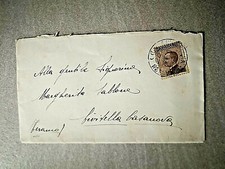 Alla gentile Signorina
Margherita Sablone
Civitella Casanova
(Teramo)